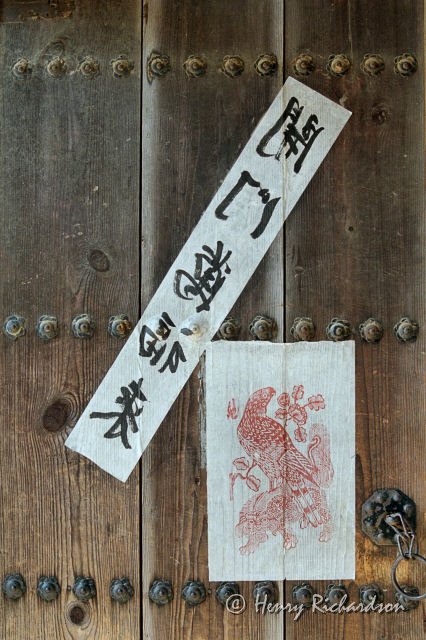 開門萬福來
@ Henry Richardson